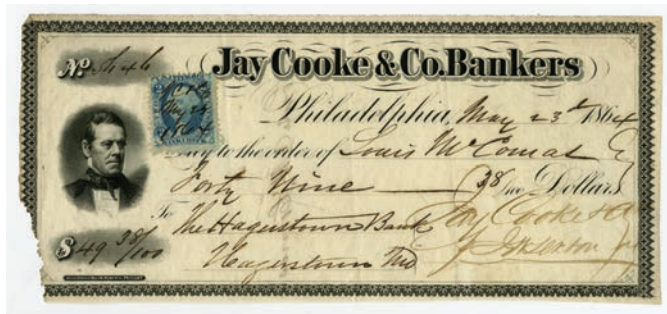 No
Jay Cooke & Co. Bankers
Philadelphia, May 23d 1864
Pay to the order of Louis McComas Eq
Forty Nine 38/100 Dollars
To The Hagerstown Bank
Jay Cooke & Co
$49 38/100
Hagerstown Md